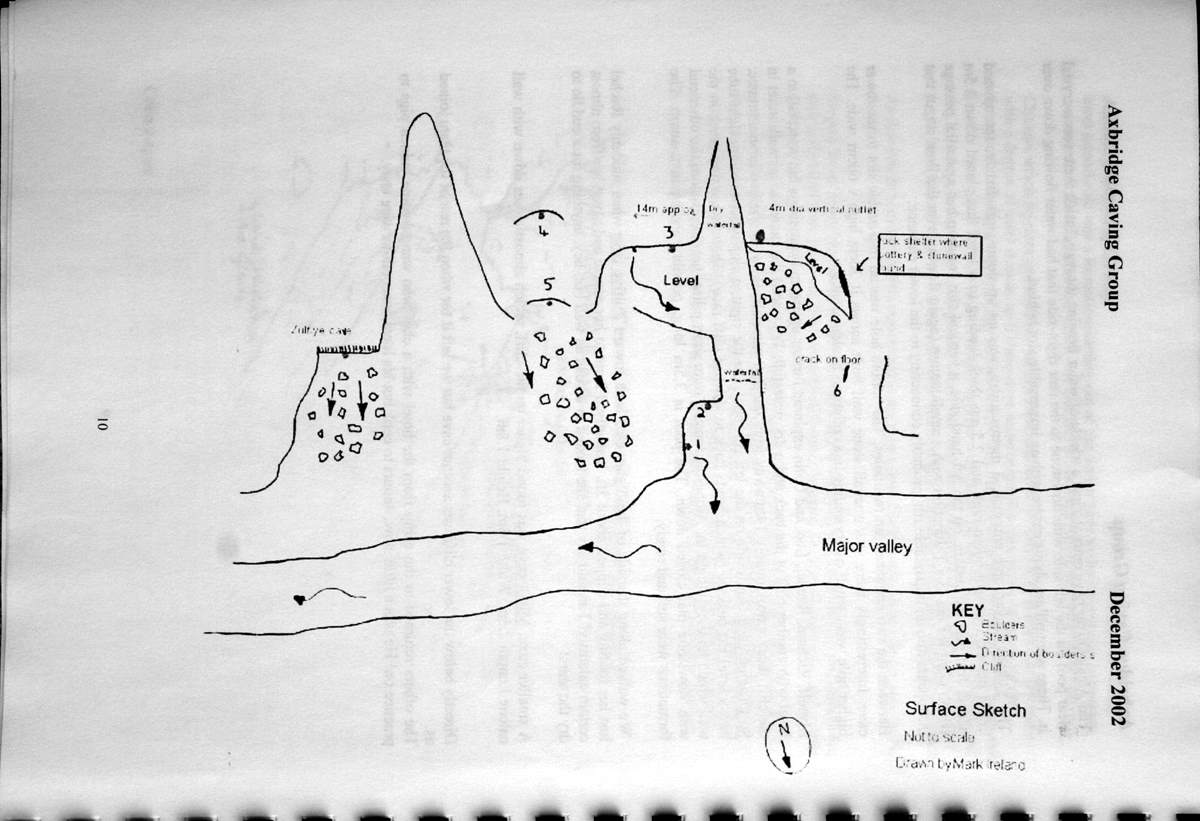 Axbridge Caving Group
December 2002
14m approx
Dry
waterfall
4m dia vertical outlet
3
4
5
Level
Level
rock shelter where
pottery & stonewall
found
Zulfiye cave
crack on floor
6
waterfall
2
1
Major valley
KEY
Boulders
Stream
Direction of boulders
Cliff
Surface Sketch
Not to scale
Drawn by Mark Ireland
N
10